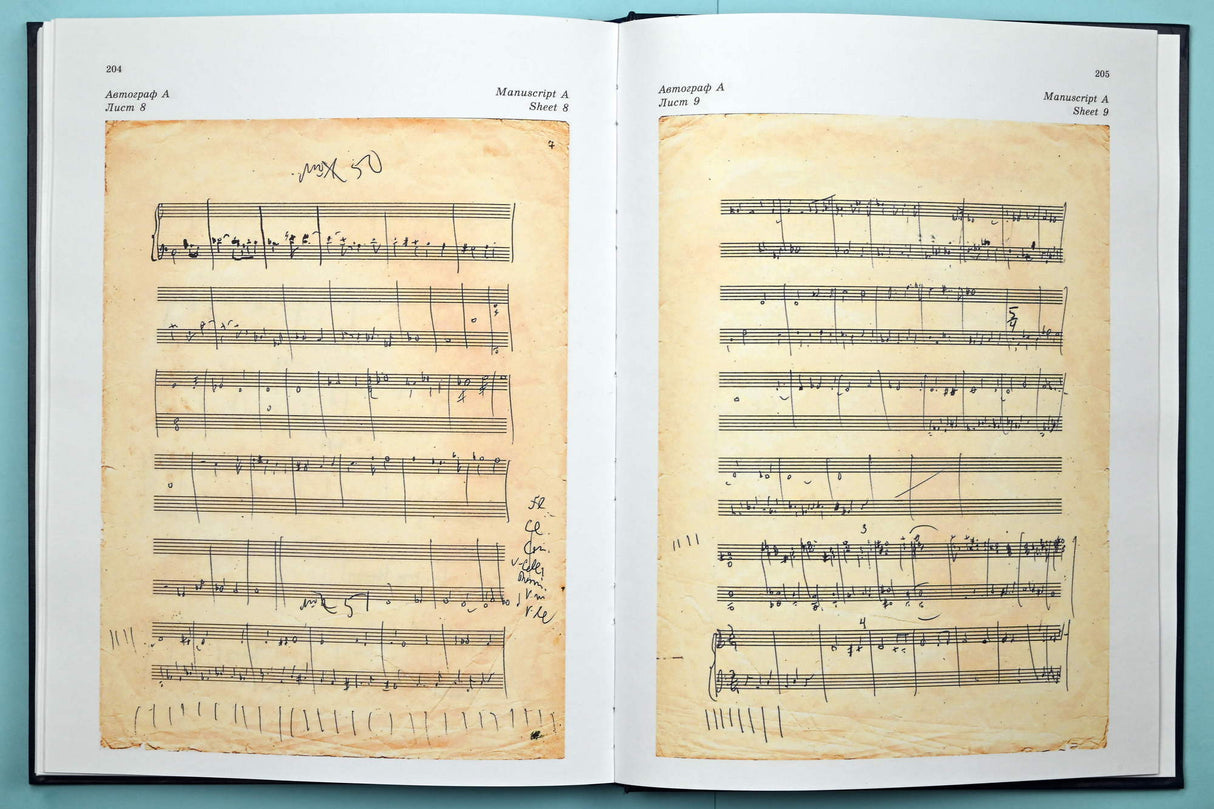 204
Автограф А
Лист 8
Manuscript A
Sheet 8
7
50
Fl.
Cl.
Corni.
V-celli
V-ni
V-le
51
205
Автограф А
Лист 9
Manuscript A
Sheet 9
5
4
3
4